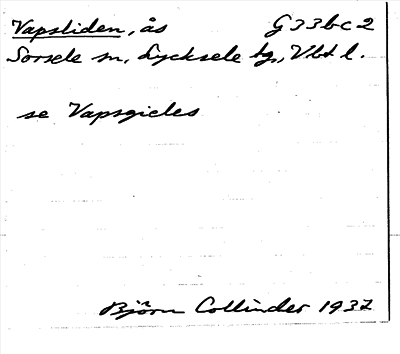 Vapsliden, ås G33bc2
Sorsele sn, Lycksele tg, Vbt l.
se Vapsgieles
Björn Collinder 1937